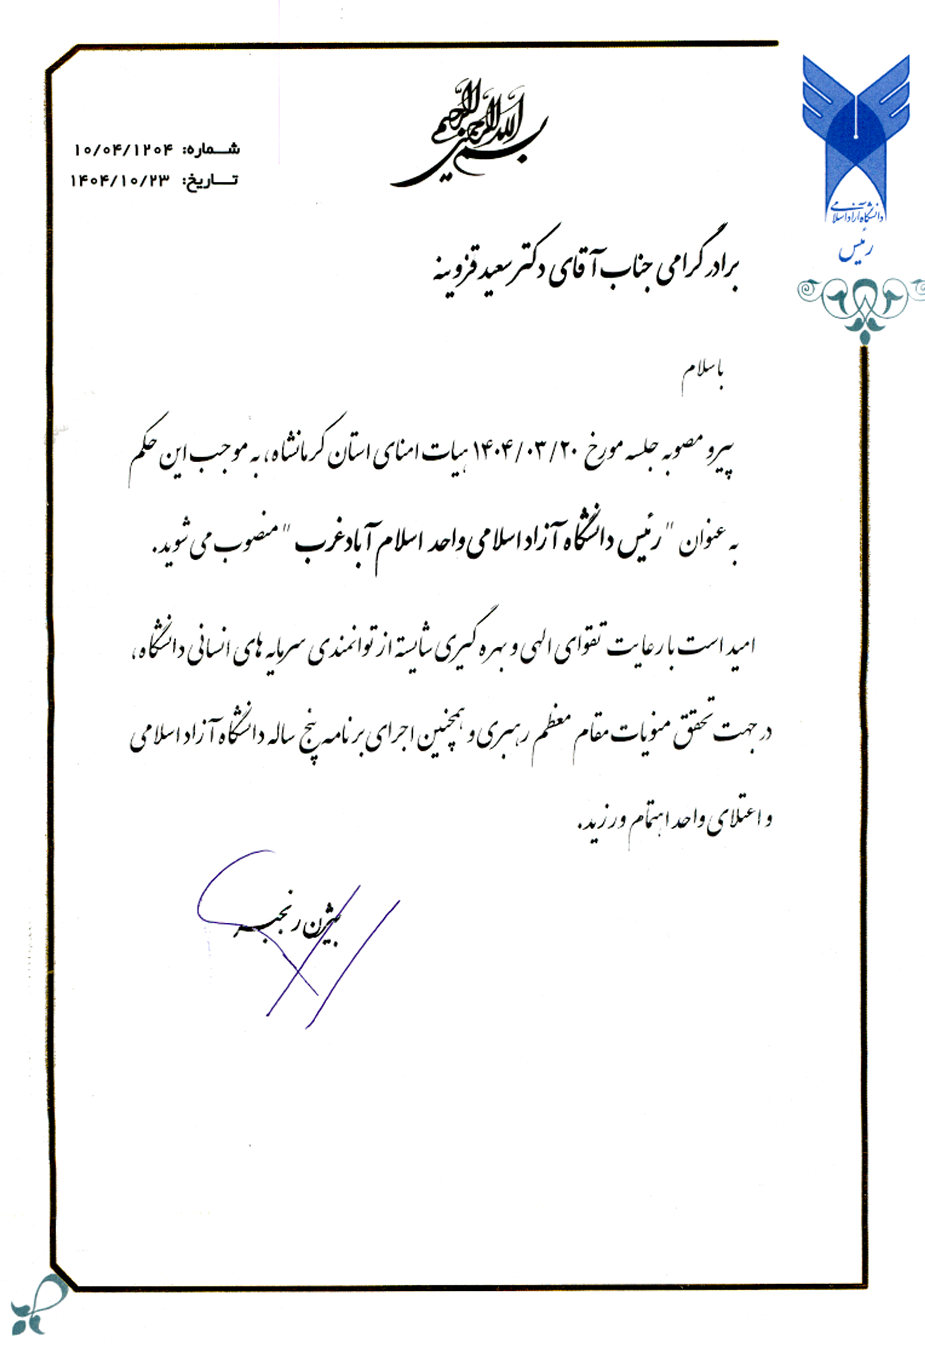 بسم الله الرحمن الرحیم
شماره: ۱۰/۰۴/۱۲۰۴
تاریخ: ۱۴۰۴/۱۰/۲۳
دانشگاه آزاد اسلامی
رئیس
برادر گرامی جناب آقای دکتر سعید قزوینه
با سلام
پیرو مصوبه جلسه مورخ ۱۴۰۴/۰۳/۲۰ هیات امنای استان کرمانشاه، به موجب این حکم
به عنوان "رئیس دانشگاه آزاد اسلامی واحد اسلام آبادغرب" منصوب می شوید.
امید است با رعایت تقوای الهی و بهره گیری شایسته از توانمندی سرمایه های انسانی دانشگاه،
در جهت تحقق منویات مقام معظم رهبری و همچنین اجرای برنامه پنج ساله دانشگاه آزاد اسلامی
و اعتلای واحد اهتمام ورزید.
بیژن رنجبر